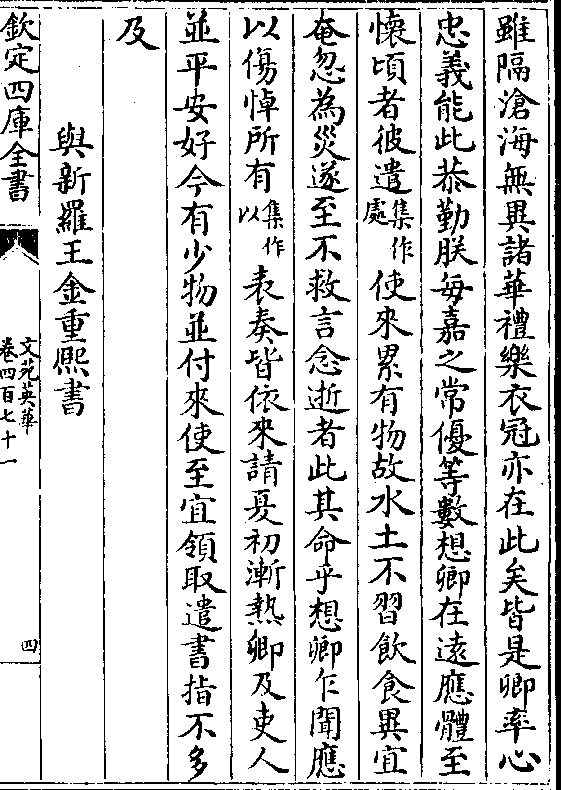 雖隔滄海無異諸華禮樂衣冠亦在此矣皆是卿率心
忠義能此恭勤朕每嘉之常優等數想卿在遠應體至
懷頃者彼遣集作處使來累有物故水土不習飲食異宜
奄忽為災遂至不救言念逝者此其命乎想卿乍聞應
以傷悼所有集作以表奏皆依來請夏初漸熱卿及吏人
並平安好今有少物並付來使至宜領取遣書指不多
及
與新羅王金重熙書
欽定四庫全書
文苑英華
卷四百七十一
四